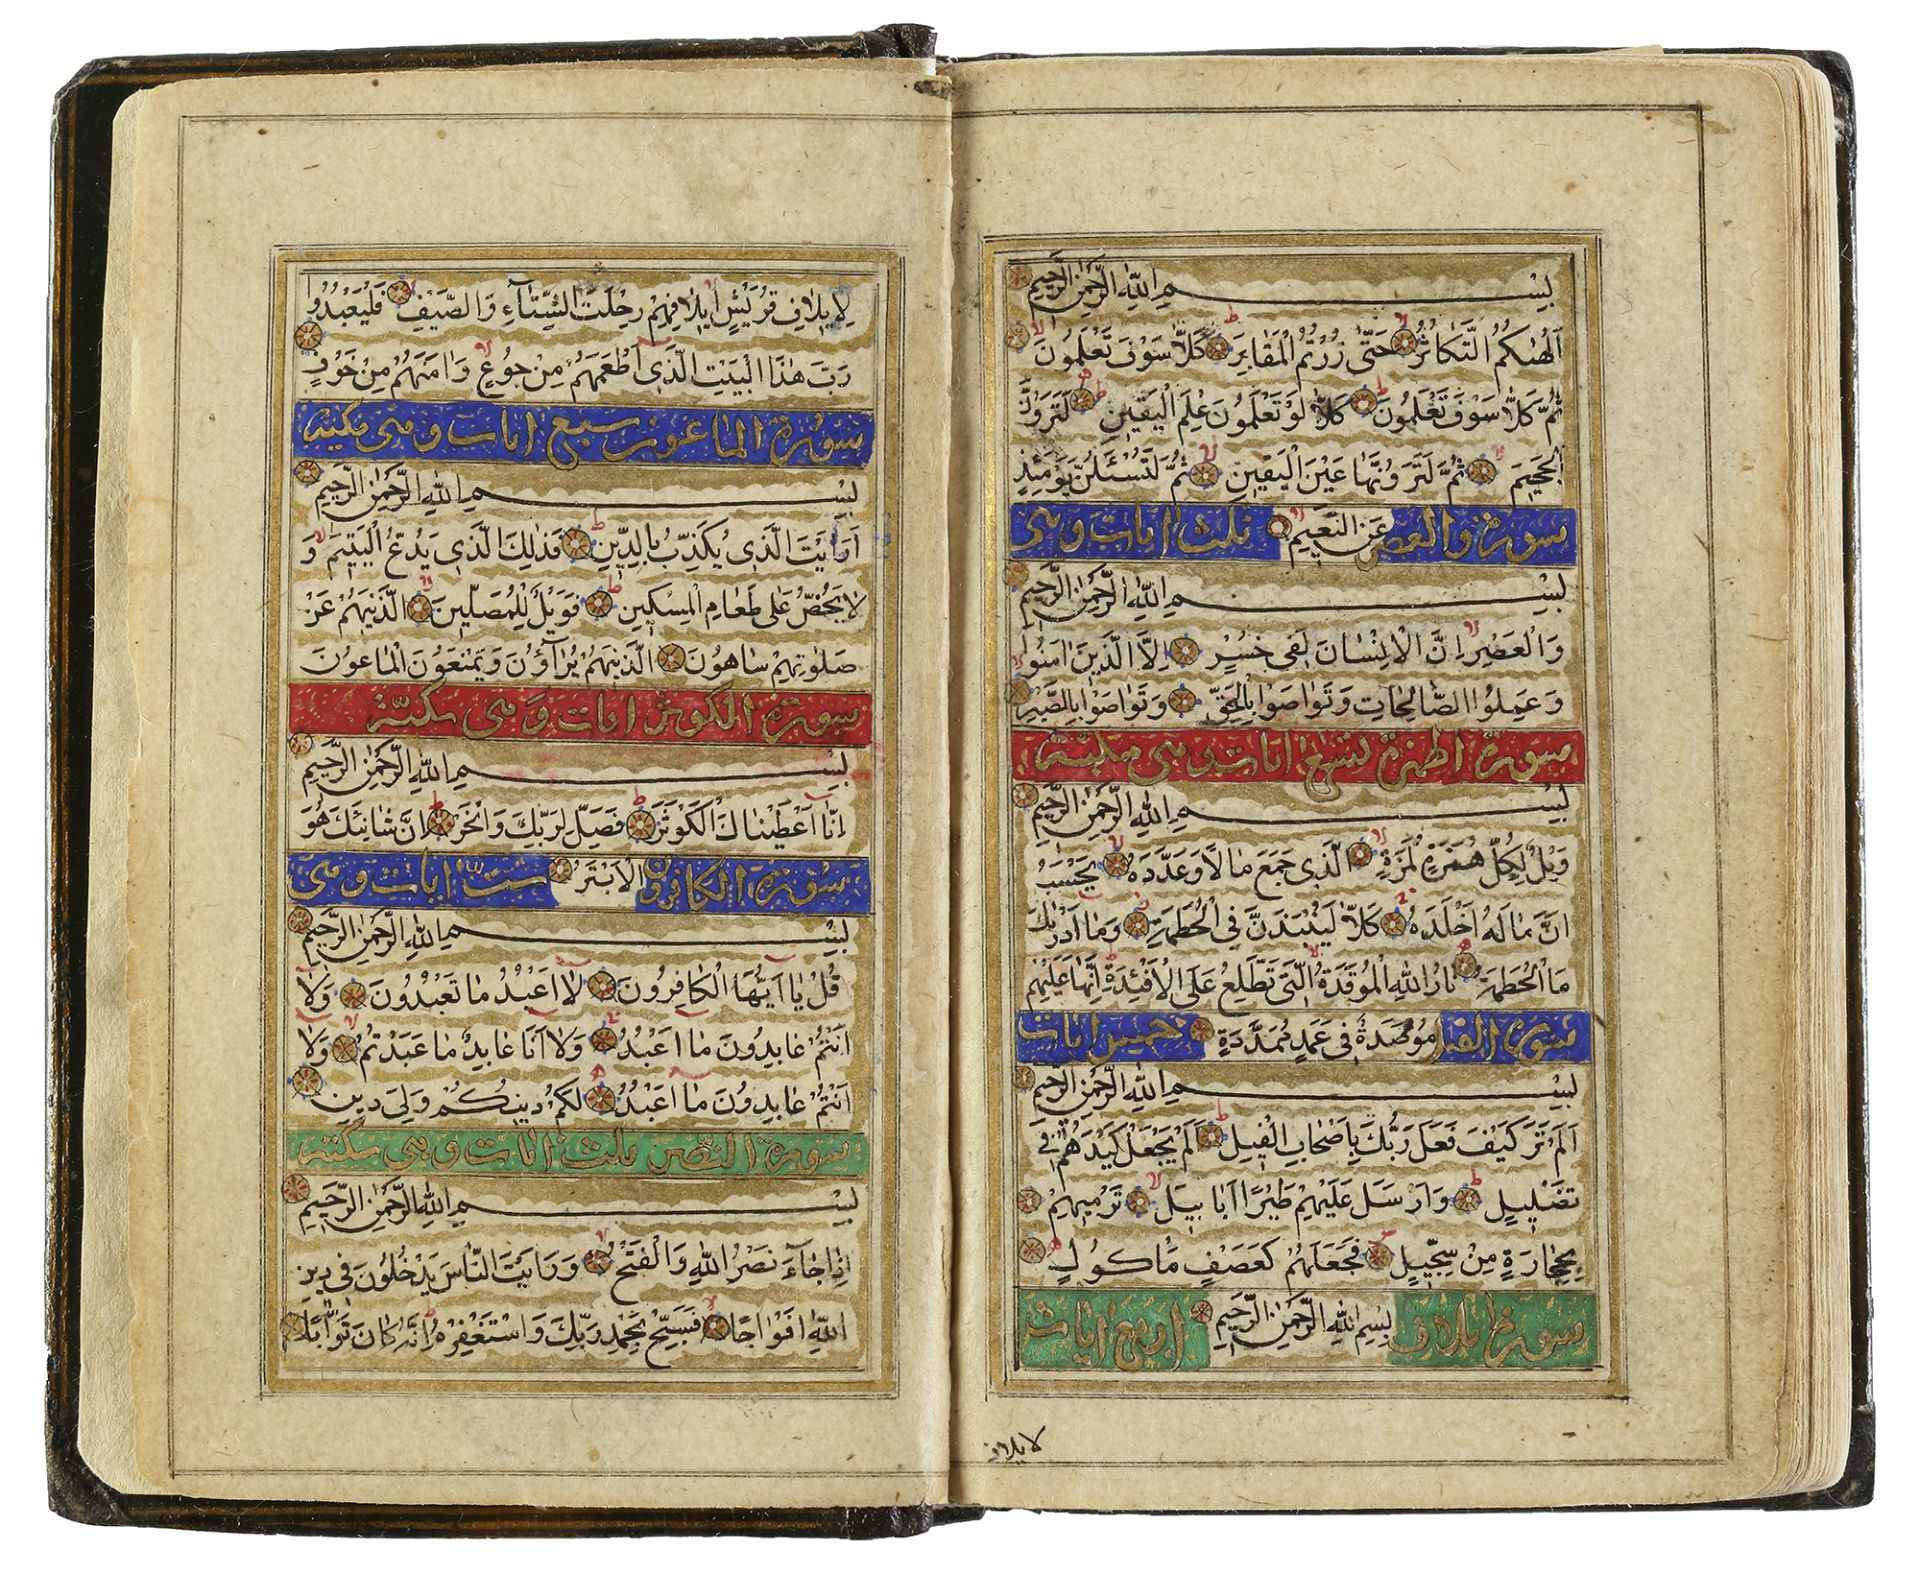 بِسْمِ اللّٰهِ الرَّحْمٰنِ الرَّحِيمِ
اَلْهٰىكُمُ التَّكَاثُرُ حَتّٰى زُرْتُمُ الْمَقَابِرَ كَلَّا سَوْفَ تَعْلَمُونَ
ثُمَّ كَلَّا سَوْفَ تَعْلَمُونَ كَلَّا لَوْ تَعْلَمُونَ عِلْمَ الْيَقِينِ لَتَرَوُنَّ
الْجَحِيمَ ثُمَّ لَتَرَوُنَّهَا عَيْنَ الْيَقِينِ ثُمَّ لَتُسْئَلُنَّ يَوْمَئِذٍ
عَنِ النَّعِيمِ
سورة والعصر ثلث ايات وهى
بِسْمِ اللّٰهِ الرَّحْمٰنِ الرَّحِيمِ
وَالْعَصْرِ اِنَّ الْاِنْسَانَ لَفِى خُسْرٍ اِلَّا الَّذِينَ اٰمَنُوا
وَعَمِلُوا الصَّالِحَاتِ وَتَوَاصَوْا بِالْحَقِّ وَتَوَاصَوْا بِالصَّبْرِ
سورة الهمزة تسع ايات وهى مكية
بِسْمِ اللّٰهِ الرَّحْمٰنِ الرَّحِيمِ
وَيْلٌ لِكُلِّ هُمَزَةٍ لُمَزَةٍ الَّذِى جَمَعَ مَالًا وَعَدَّدَهُ يَحْسَبُ
اَنَّ مَالَهُ اَخْلَدَهُ كَلَّا لَيُنْبَذَنَّ فِى الْحُطَمَةِ وَمَا اَدْرٰيكَ
مَا الْحُطَمَةُ نَارُ اللّٰهِ الْمُوقَدَةُ الَّتِى تَطَّلِعُ عَلَى الْاَفْئِدَةِ اِنَّهَا عَلَيْهِمْ
مُوصَدَةٌ فِى عَمَدٍ مُمَدَّدَةٍ
سورة الفيل خمس ايات
بِسْمِ اللّٰهِ الرَّحْمٰنِ الرَّحِيمِ
اَلَمْ تَرَ كَيْفَ فَعَلَ رَبُّكَ بِاَصْحَابِ الْفِيلِ اَلَمْ يَجْعَلْ كَيْدَهُمْ فِى
تَضْلِيلٍ وَاَرْسَلَ عَلَيْهِمْ طَيْرًا اَبَابِيلَ تَرْمِيهِمْ
بِحِجَارَةٍ مِنْ سِجِّيلٍ فَجَعَلَهُمْ كَعَصْفٍ مَاْكُولٍ
سورة ايلاف اربع ايات
بِسْمِ اللّٰهِ الرَّحْمٰنِ الرَّحِيمِ
لايلاف
لِاِيلَافِ قُرَيْشٍ اِيلَافِهِمْ رِحْلَتَ الشِّتَآءِ وَالصَّيْفِ فَلْيَعْبُدُوا
رَبَّ هٰذَا الْبَيْتِ الَّذِى اَطْعَمَهُمْ مِنْ جُوعٍ وَاٰمَنَهُمْ مِنْ خَوْفٍ
سورة الماعون سبع ايات وهى مكية
بِسْمِ اللّٰهِ الرَّحْمٰنِ الرَّحِيمِ
اَرَاَيْتَ الَّذِى يُكَذِّبُ بِالدِّينِ فَذٰلِكَ الَّذِى يَدُعُّ الْيَتِيمَ وَ
لَا يَحُضُّ عَلٰى طَعَامِ الْمِسْكِينِ فَوَيْلٌ لِلْمُصَلِّينَ الَّذِينَ هُمْ عَنْ
صَلٰوتِهِمْ سَاهُونَ الَّذِينَ هُمْ يُرَآؤُنَ وَيَمْنَعُونَ الْمَاعُونَ
سورة الكوثر ايات وهى مكية
بِسْمِ اللّٰهِ الرَّحْمٰنِ الرَّحِيمِ
اِنَّا اَعْطَيْنَاكَ الْكَوْثَرَ فَصَلِّ لِرَبِّكَ وَانْحَرْ اِنَّ شَانِئَكَ هُوَ
الْاَبْتَرُ
سورة الكافرون ست ايات وهى
بِسْمِ اللّٰهِ الرَّحْمٰنِ الرَّحِيمِ
قُلْ يَا اَيُّهَا الْكَافِرُونَ لَا اَعْبُدُ مَا تَعْبُدُونَ وَلَا
اَنْتُمْ عَابِدُونَ مَا اَعْبُدُ وَلَا اَنَا عَابِدٌ مَا عَبَدْتُمْ وَلَا
اَنْتُمْ عَابِدُونَ مَا اَعْبُدُ لَكُمْ دِينُكُمْ وَلِىَ دِينِ
سورة النصر ثلث ايات وهى مكية
بِسْمِ اللّٰهِ الرَّحْمٰنِ الرَّحِيمِ
اِذَا جَآءَ نَصْرُ اللّٰهِ وَالْفَتْحُ وَرَاَيْتَ النَّاسَ يَدْخُلُونَ فِى دِينِ
اللّٰهِ اَفْوَاجًا فَسَبِّحْ بِحَمْدِ رَبِّكَ وَاسْتَغْفِرْهُ اِنَّهُ كَانَ تَوَّابًا